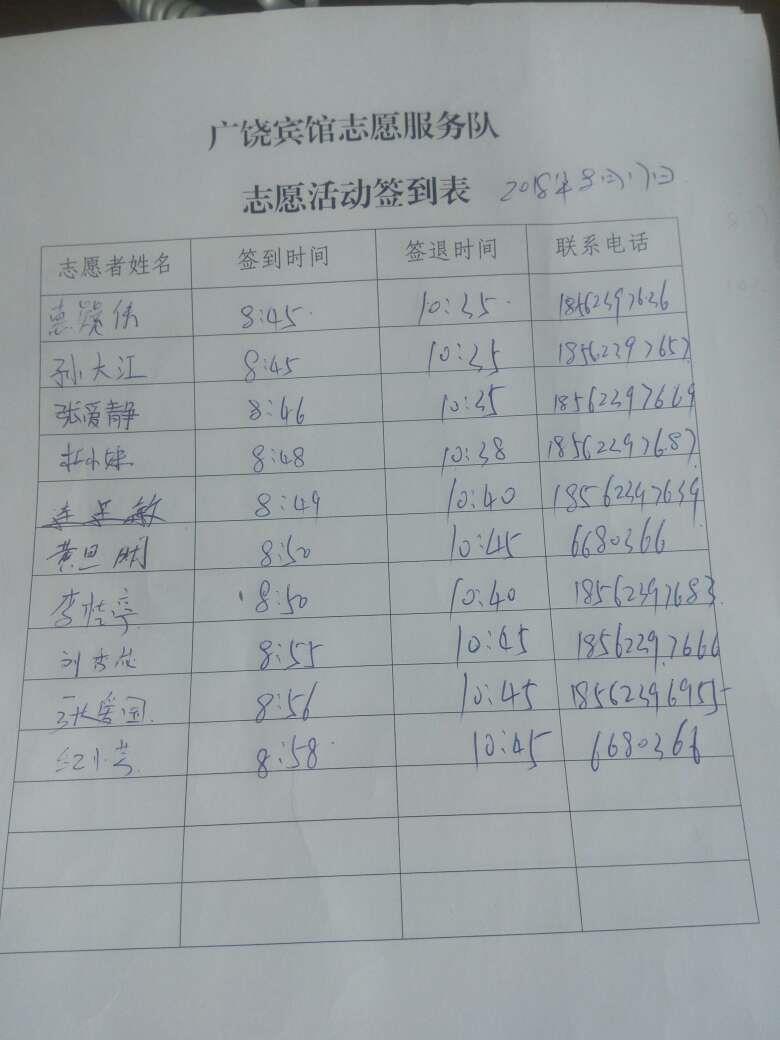 广饶宾馆志愿服务队
志愿活动签到表 2018年8月17日
志愿者姓名 签到时间 签退时间 联系电话
8:45 10:35 18562397636
孙大江 8:45 10:35 18562297657
张爱静 8:46 10:35 18562397669
8:48 10:38 18562397687
8:49 10:40 18562397639
黄思明 8:50 10:45 6680366
李桂亭 8:50 10:40 18562397683
刘杏花 8:55 10:45 18562297666
张爱国 8:56 10:45 18562396955
红小芳 8:58 10:45 6680366